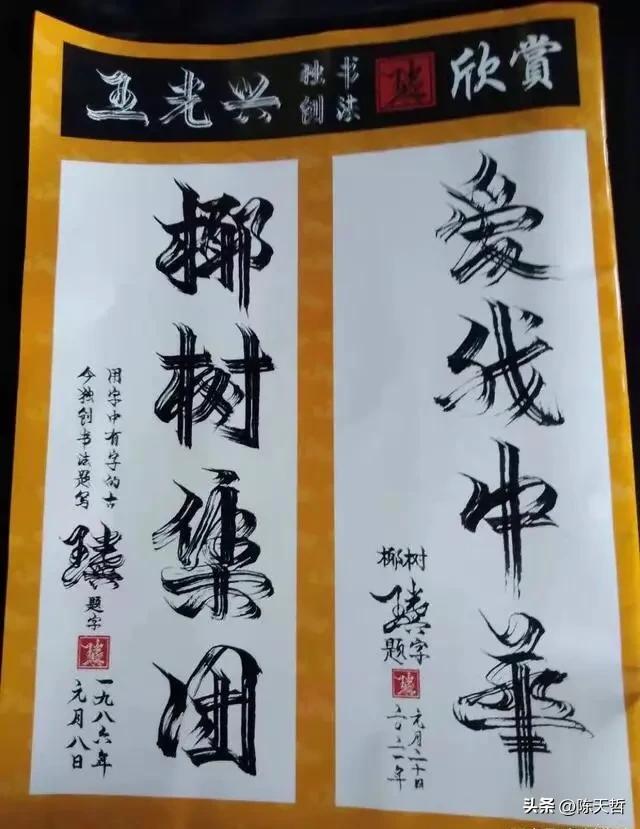 王光兴
独创
书法
欣赏
爱我中华
椰树
题字
二〇二一年
元月二十日
椰树集团
用字中有字的古
今独创书法题写
题字
一九八六年
元月八日
头条 @陈天哲